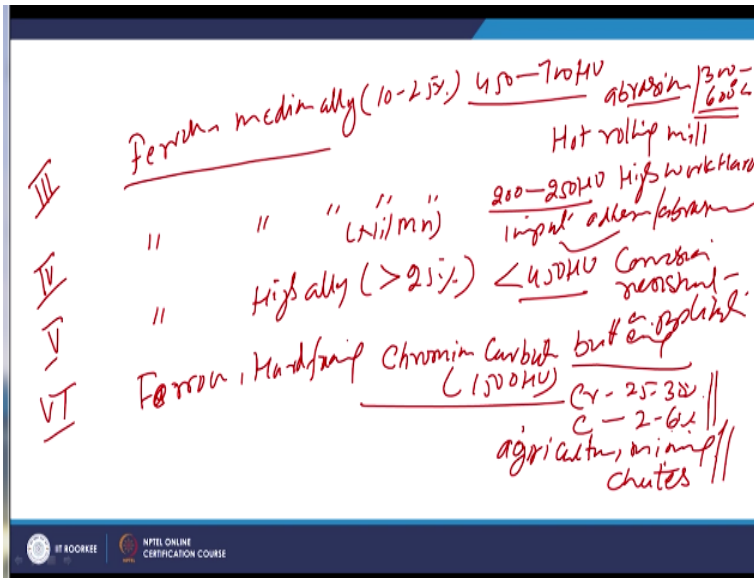 III Ferrous medium alloy (10-25%) 450-700HV abrasion / 300-600°C
Hot rolling mill
IV " " " (Ni/Mn) " 200-250HV High work Hard
impact adhesn/abrasn
V " High alloy (>25%) <450HV Corrosion
resistant
VI Ferrous, Hardfacing Chromium Carbide but
(1500HV) Cr - 25-30%
C - 2-6%
agricultu, mining
chutes
IIT ROORKEE
NPTEL ONLINE
CERTIFICATION COURSE